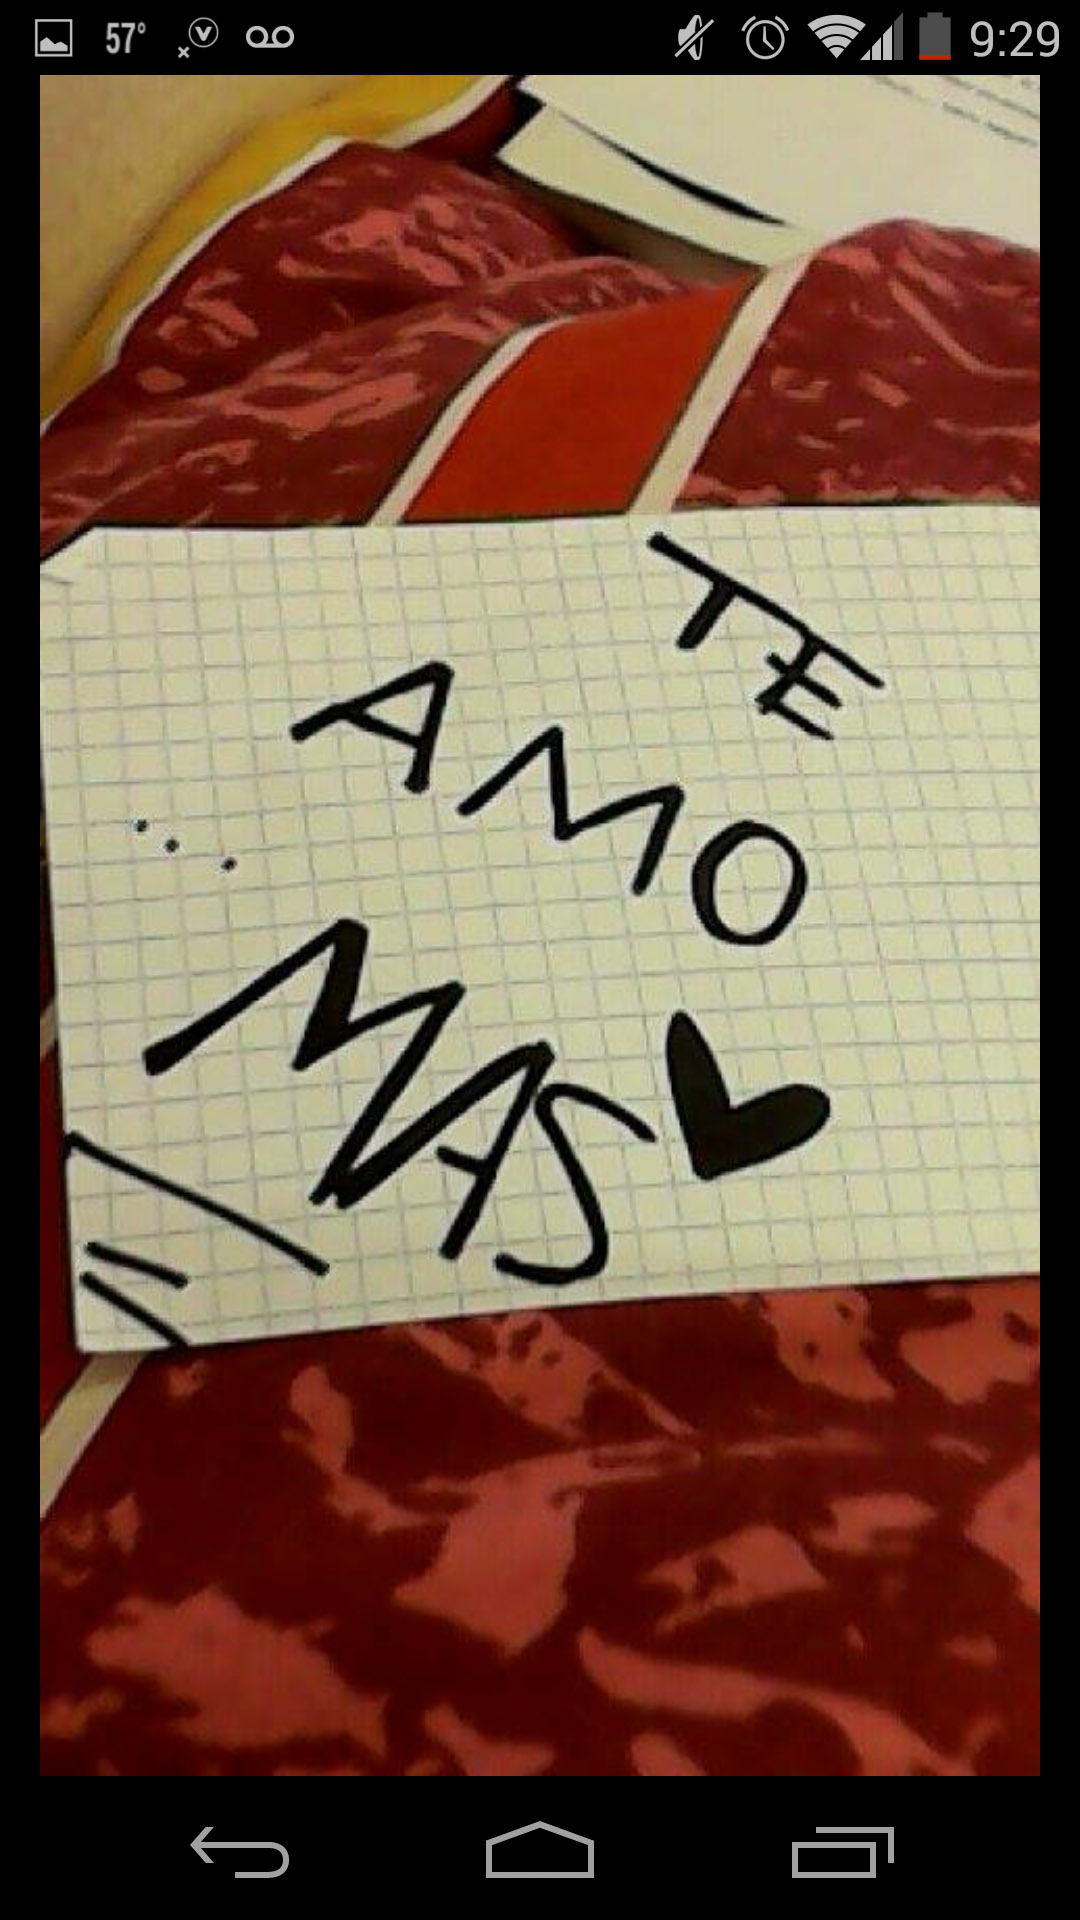 57° 9:29
TE
AMO
...
MAS